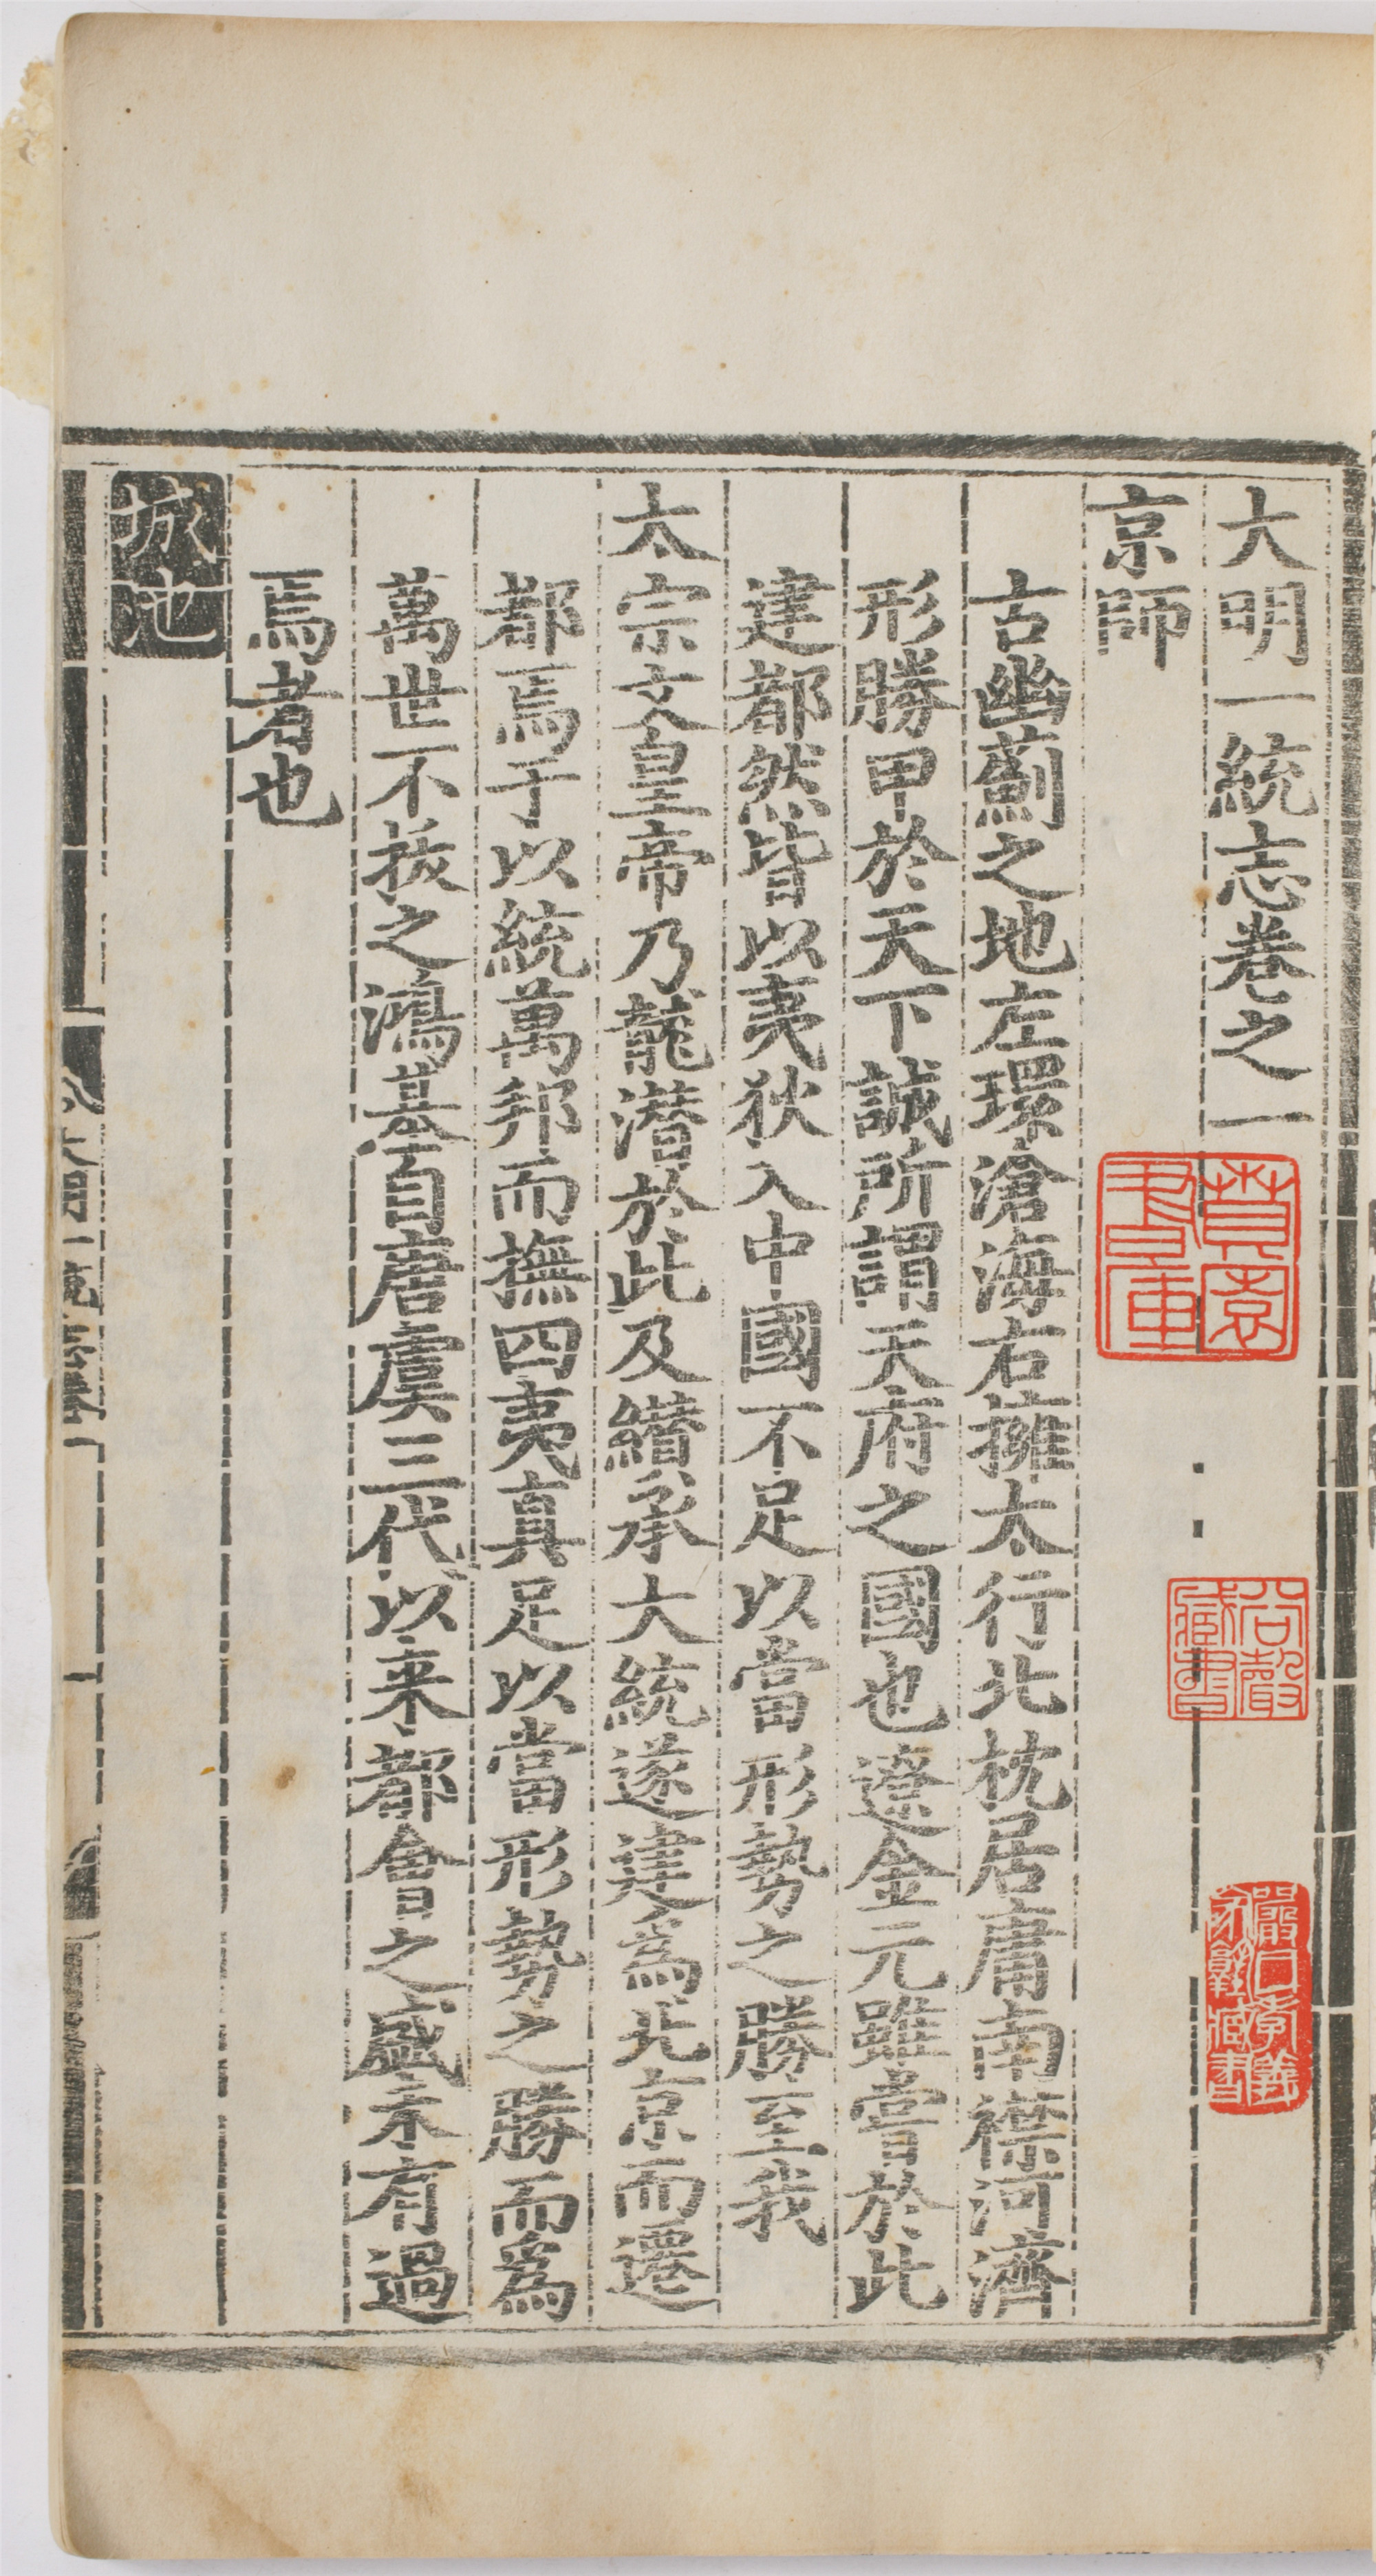 大明一統志卷之一
京師
古幽薊之地左環滄海右擁太行北枕居庸南襟河濟
形勝甲於天下誠所謂天府之國也遼金元雖嘗於此
建都然皆以夷狄入中國不足以當形勢之勝至我
太宗文皇帝乃龍潛於此及纘承大統遂建為北京而遷
都焉于以統萬邦而撫四夷真足以當形勢之勝而為
萬世不拔之鴻基自唐虞三代以来都會之盛未有過
焉者也
城池
賁園
書庫
藏書